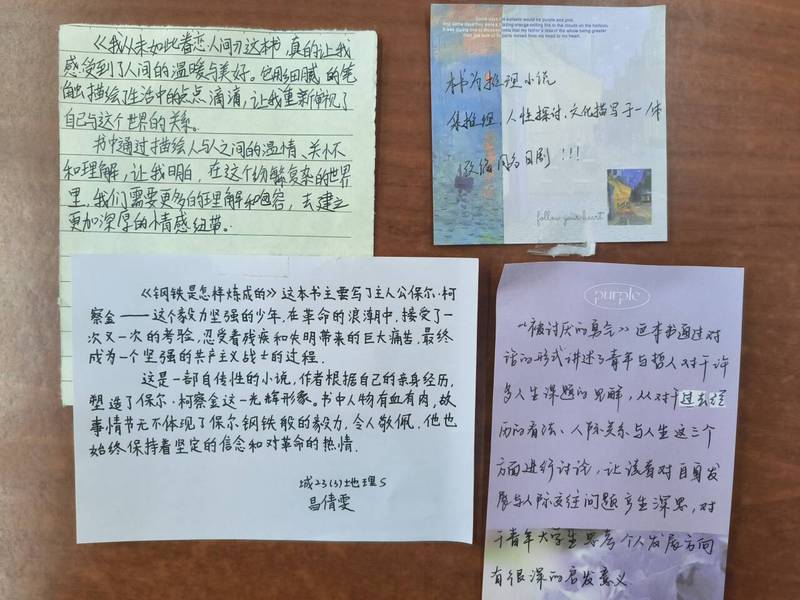 《我从未如此眷恋人间》这本书,真的让我
感受到了人间的温暖与美好。它用细腻的笔
触描绘了生活中的点点滴滴,让我重新审视了
自己与这个世界的关系。
书中通过描绘人与人之间的温情、关怀
和理解,让我明白,在这个纷繁复杂的世界
里,我们需要更多的理解和包容,去建立
更加深厚的情感纽带。
本书为推理小说
集推理、人性探讨、文化描写于一体
改编同名日剧!!!
follow your heart
《钢铁是怎样炼成的》这本书主要写了主人公保尔·柯
察金——这个毅力坚强的少年,在革命的浪潮中,接受了一
次又一次的考验,忍受着残疾和失明带来的巨大痛苦,最终
成为一个坚强的共产主义战士的过程。
这是一部自传性的小说,作者根据自己的亲身经历,
塑造了保尔·柯察金这一光辉形象。书中人物有血有肉,故
事情节无不体现了保尔钢铁般的毅力,令人敬佩。他也
始终保持着坚定的信念和对革命的热情。
城23(3)地理S
昌倩雯
purple
《被讨厌的勇气》这本书通过对
话的形式讲述了青年与哲人对于许
多人生课题的见解,从对于过去经
历的看法、人际关系与人生这三个
方面进行讨论,让读者对自身发
展与人际交往问题产生深思,对
于青年大学生思考个人发展方向
有很深的启发意义